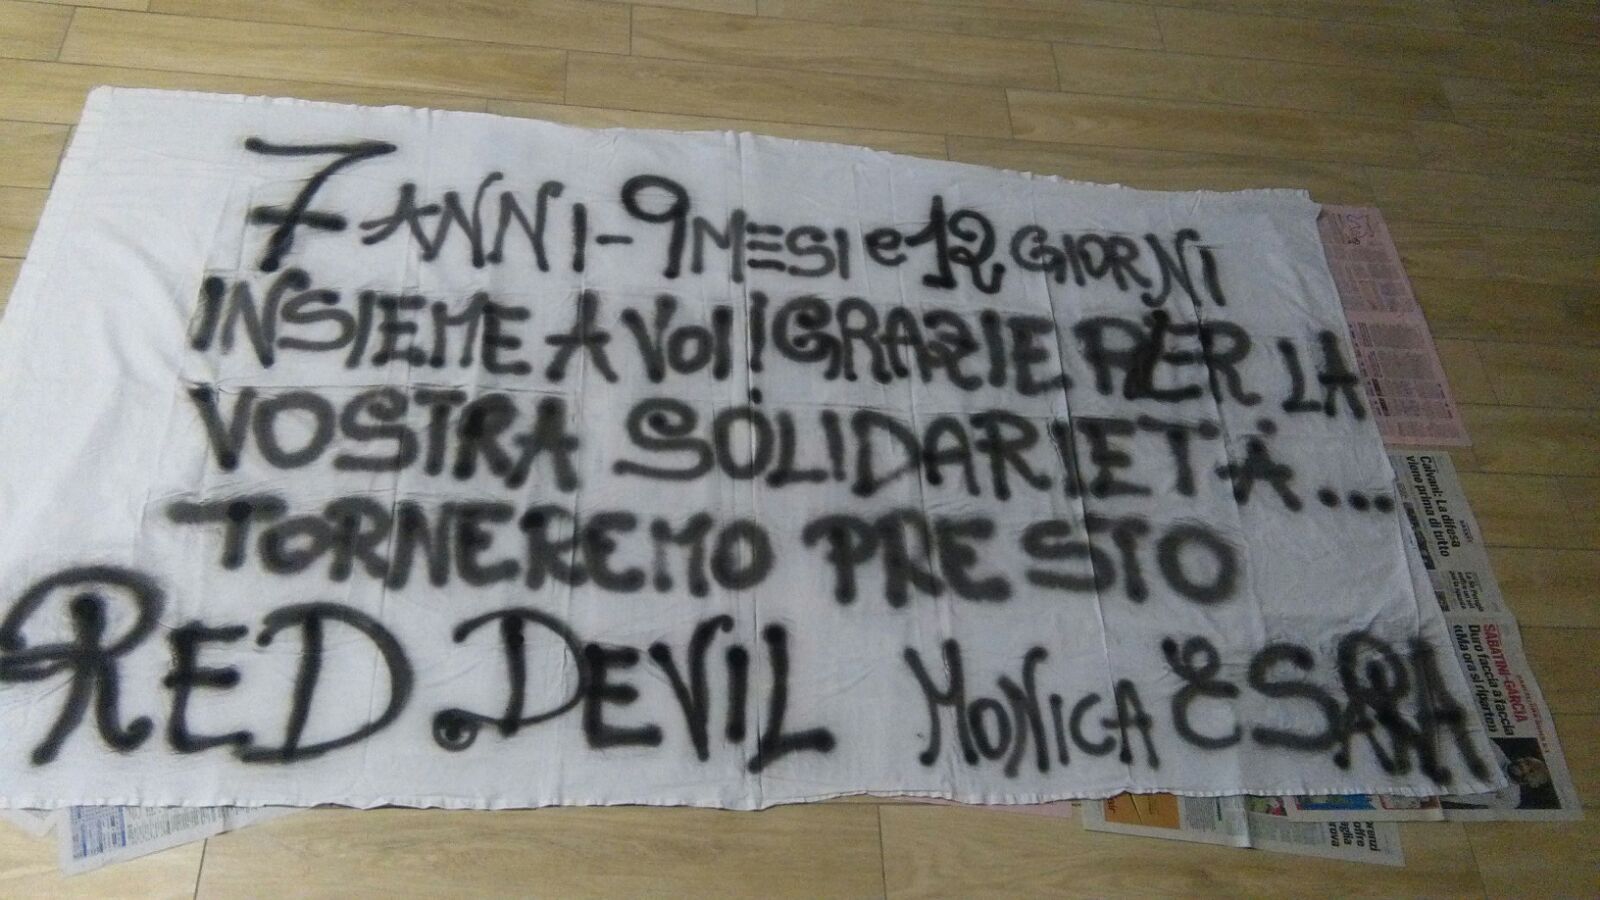 7 ANNI - 9 MESI e 12 GIORNI
INSIEME A VOI! GRAZIE PER LA
VOSTRA SOLIDARIETÀ...
TORNEREMO PRESTO
RED DEVIL MONICA E SARA
Calvani: La difesa
viene prima di tutto
SABATINI-GARCIA
Duro faccia a faccia